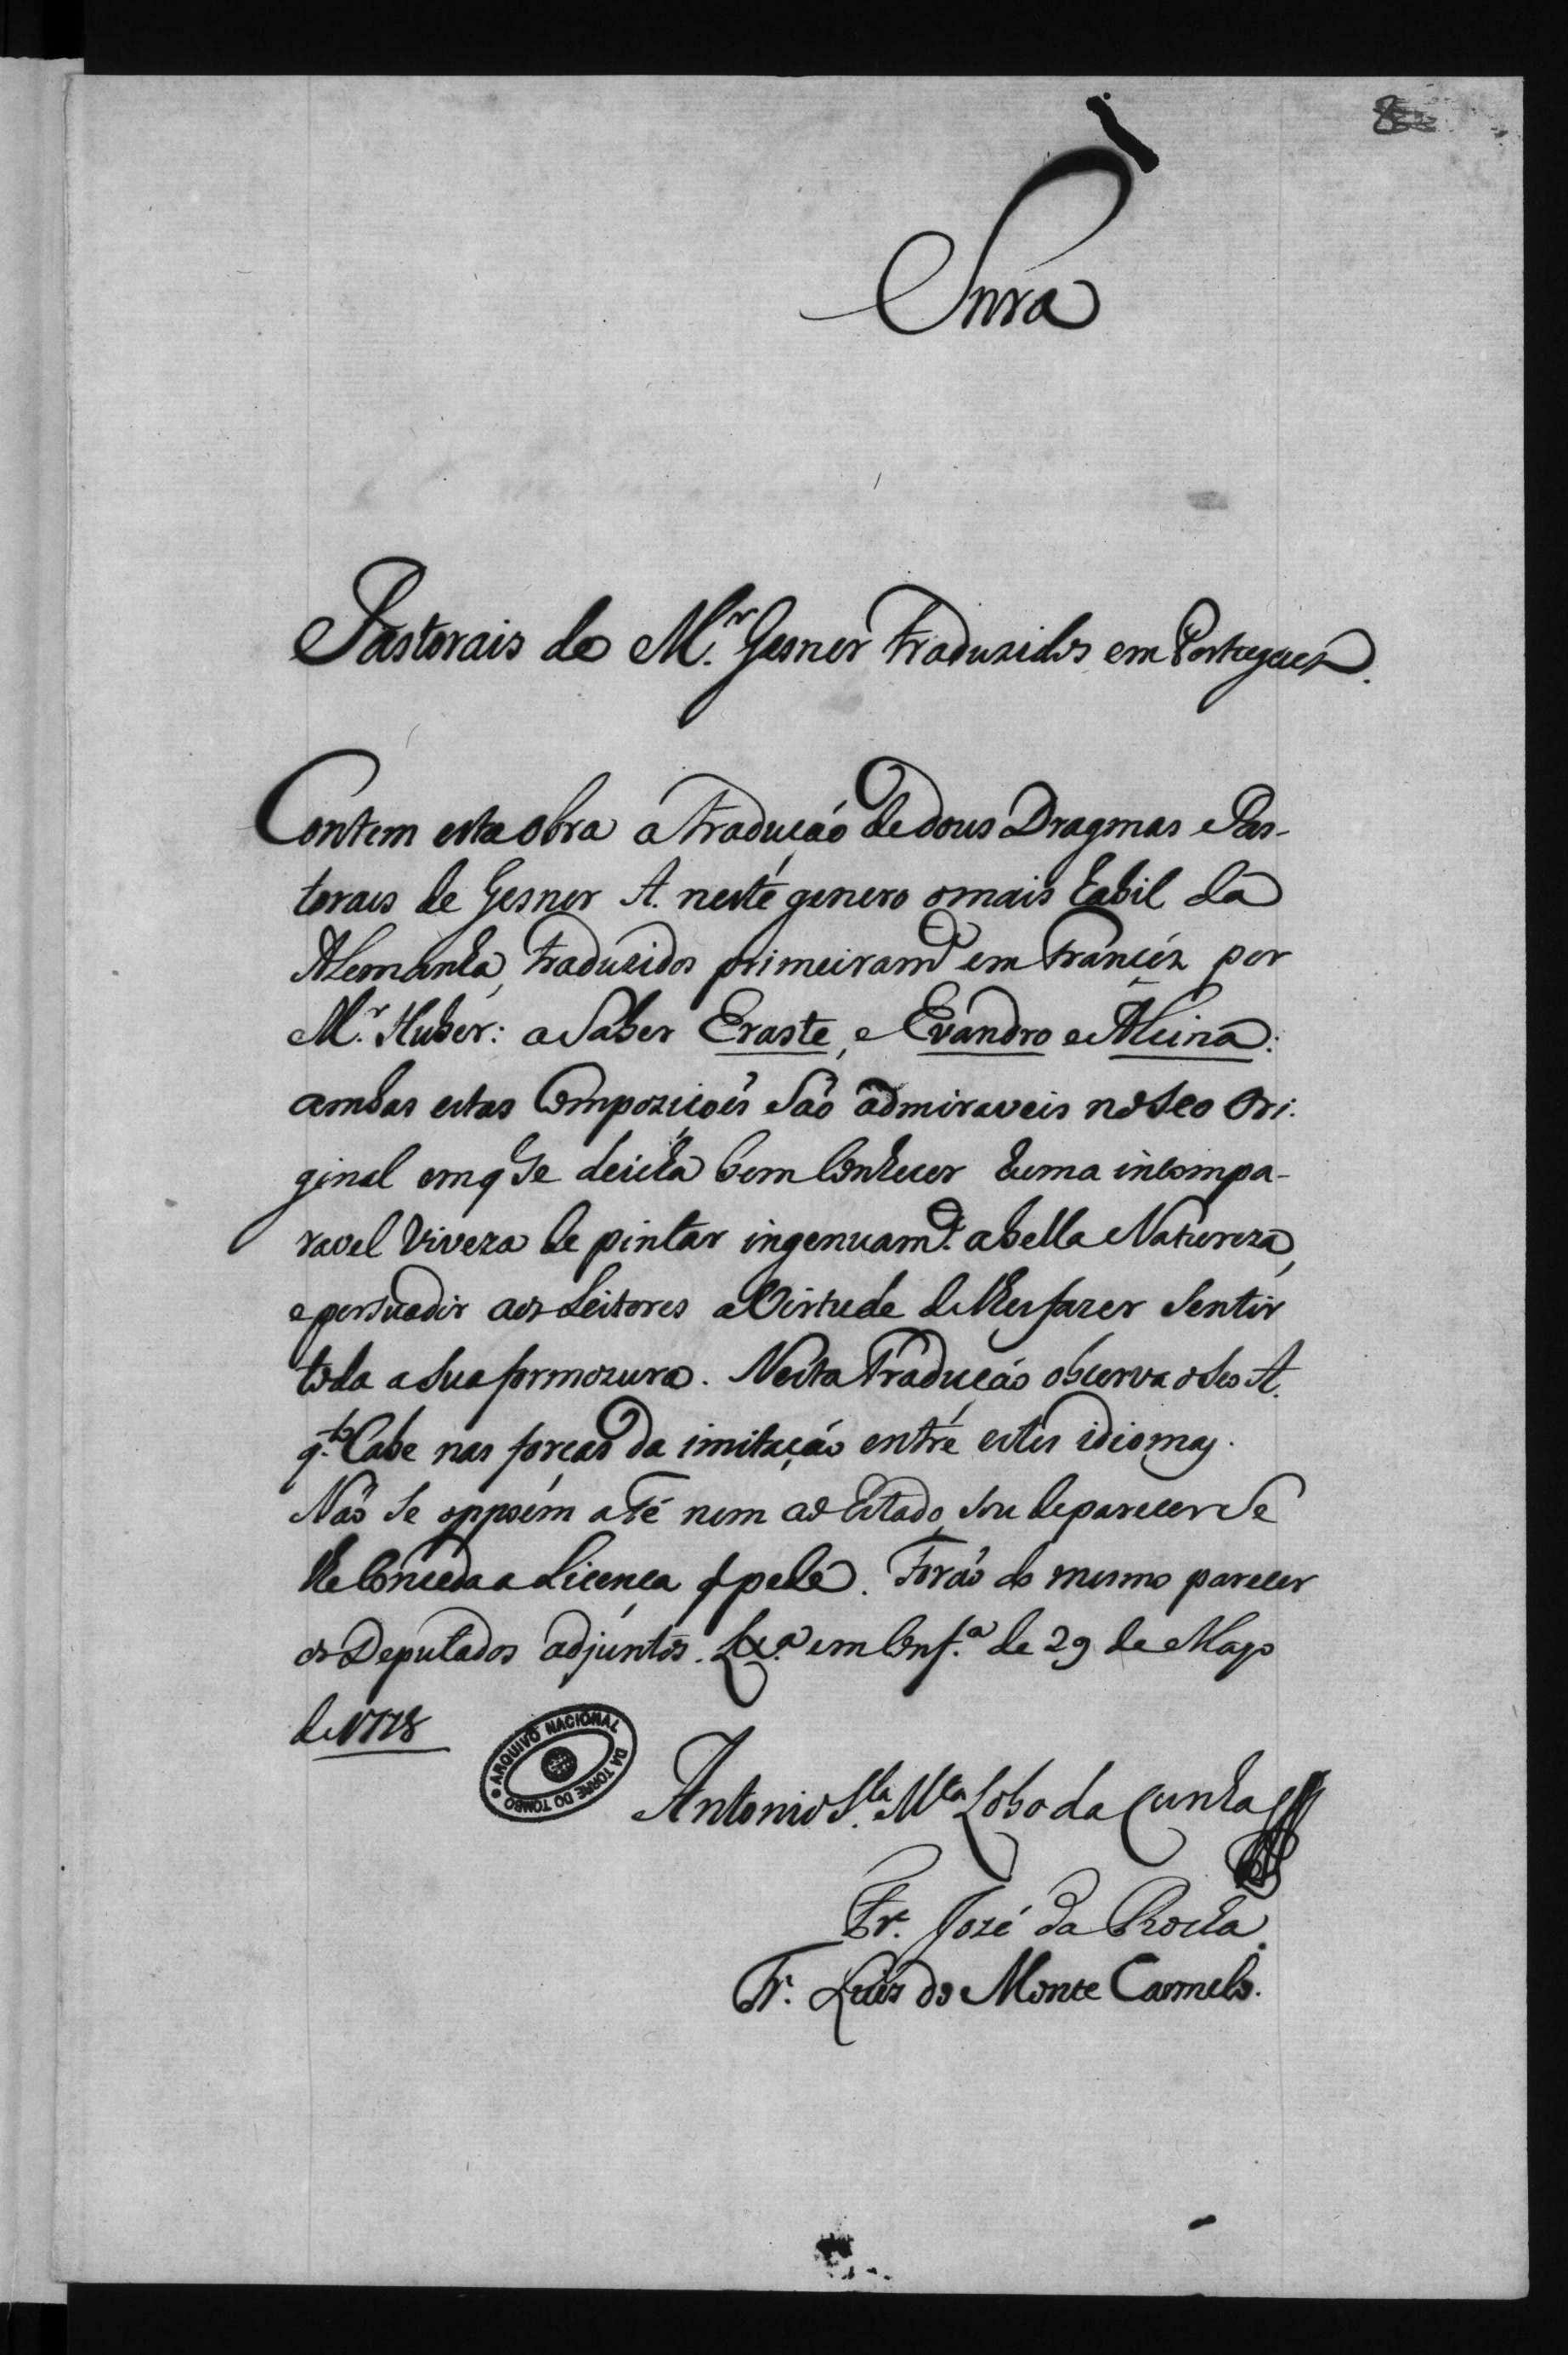 8
Snra
Pastorais de M.r Gesner traduzidos em Portuguez.
Contem esta obra a traducáo de dous Dragmas Pas-
toraes de Gesner A. neste genero o mais habil da
Alemanha, traduzidos primeiram.te em Francéz por
M.r Huber: a saber Eraste, e Evandro e Alcina:
ambas estas Compoziçoẽs são admiraveis no seo Ori-
ginal em q se deicha bem conhecer huma incompa-
ravel viveza de pintar ingenuam.te a bella Natureza,
e persuadir aos Leitores a Virtude de lhes fazer sentir
toda a sua formozura. Nesta Traduçáo observa o seo A.
q.to Cabe nas forcas da imitaçáo entre estes idiomas.
Não se oppoém a Fé nem ao Estado, sou de parecer se
lhe Conceda a Licença q pede. Foráo do mesmo parecer
os Deputados adjuntos. Lx.a em Conf.a de 29 de Mayo
de 1778
ARQUIVO NACIONAL DA TORRE DO TOMBO
Antonio S.ta M.ta Lobo da Cunha
Fr. Jozé da Rocha.
Fr. Luiz do Monte Carmelo.